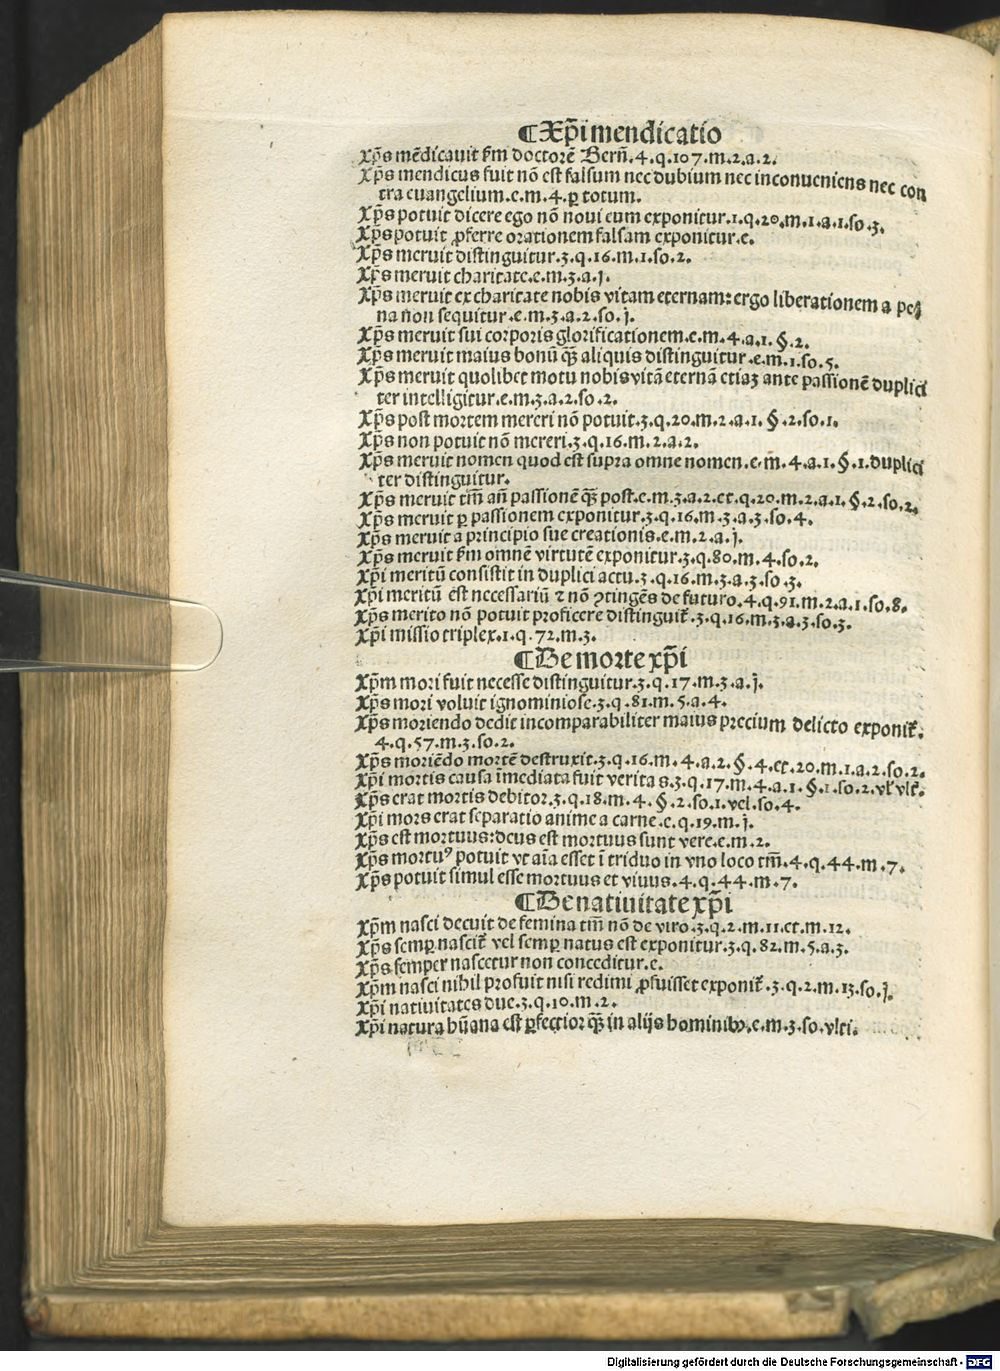 ¶Xp̄i mendicatio
Xp̄s mēdicauit ẜm doctorē Berñ.4.q.107.m.2.a.2.
Xp̄s mendicus fuit nō est falsum nec dubium nec inconueniens nec con
tra euangelium.e.m.4.ꝑ totum.
Xp̄s potuit dicere ego nō noui eum exponitur.1.q.20.m.1.a.1.so.3.
Xp̄s potuit ꝓferre orationem falsam exponitur.e.
Xp̄s meruit distinguitur.3.q.16.m.1.so.2.
Xp̄s meruit charitate.e.m.3.a.j.
Xp̄s meruit ex charitate nobis vitam eternam: ergo liberationem a pe
na non sequitur.e.m.3.a.2.so.j.
Xp̄s meruit sui corporis glorificationem.e.m.4.a.1.§.2.
Xp̄s meruit maius bonū qȝ aliquis distinguitur.e.m.1.so.5.
Xp̄s meruit quolibet motu nobis vitā eternā etiaȝ ante passionē duplici
ter intelligitur.e.m.3.a.2.so.2.
Xp̄s post mortem mereri nō potuit.3.q.20.m.2.a.1.§.2.so.1.
Xp̄s non potuit nō mereri.3.q.16.m.2.a.2.
Xp̄s meruit nomen quod est supra omne nomen.e.m.4.a.1.§.1.duplici
ter distinguitur.
Xp̄s meruit tm̄ añ passionē qȝ post.e.m.3.a.2.et.q.20.m.2.a.1.§.2.so.2.
Xp̄s meruit ꝑ passionem exponitur.3.q.16.m.3.a.3.so.4.
Xp̄s meruit a principio sue creationis.e.m.2.a.j.
Xp̄s meruit ẜm omnē virtutē exponitur.3.q.80.m.4.so.2.
Xp̄i meritū consistit in duplici actu.3.q.16.m.3.a.3.so.3.
Xp̄i meritū est necessariū ⁊ nō ꝯtingēs de futuro.4.q.91.m.2.a.1.so.8.
Xp̄s merito nō potuit proficere distinguit᷑.3.q.16.m.3.a.3.so.3.
Xp̄i missio triplex.1.q.72.m.3.
¶De morte xp̄i
Xp̄m mori fuit necesse distinguitur.3.q.17.m.3.a.j.
Xp̄s mori voluit ignominiose.3.q.81.m.5.a.4.
Xp̄s moriendo dedit incomparabiliter maius precium delicto exponit᷑.
4.q.57.m.3.so.2.
Xp̄s moriēdo mortē destruxit.3.q.16.m.4.a.2.§.4.et.20.m.1.a.2.so.2.
Xp̄i mortis causa īmediata fuit veritas.3.q.17.m.4.a.1.§.1.so.2.vl̓ vlt᷑.
Xp̄s erat mortis debitor.3.q.18.m.4.§.2.so.1.vel.so.4.
Xp̄i mors erat separatio anime a carne.e.q.19.m.j.
Xp̄s est mortuus: deus est mortuus sunt vere.e.m.2.
Xp̄s mortuꝰ potuit vt aīa esset ī triduo in vno loco tm̄.4.q.44.m.7.
Xp̄s potuit simul esse mortuus et viuus.4.q.44.m.7.
¶De natiuitate xp̄i
Xp̄m nasci decuit de femina tm̄ nō de viro.3.q.2.m.11.et.m.12.
Xp̄s semꝑ nascit᷑ vel semꝑ natus est exponitur.3.q.82.m.5.a.3.
Xp̄s semper nascetur non conceditur.e.
Xp̄m nasci nihil profuit nisi redimi ꝓfuisset exponit᷑.3.q.2.m.13.so.j.
Xp̄i natiuitates due.3.q.10.m.2.
Xp̄i natura hūana est ꝑfectior qȝ in alijs hominibꝰ.e.m.3.so.vlti.
Digitalisierung gefördert durch die Deutsche Forschungsgemeinschaft - DFG